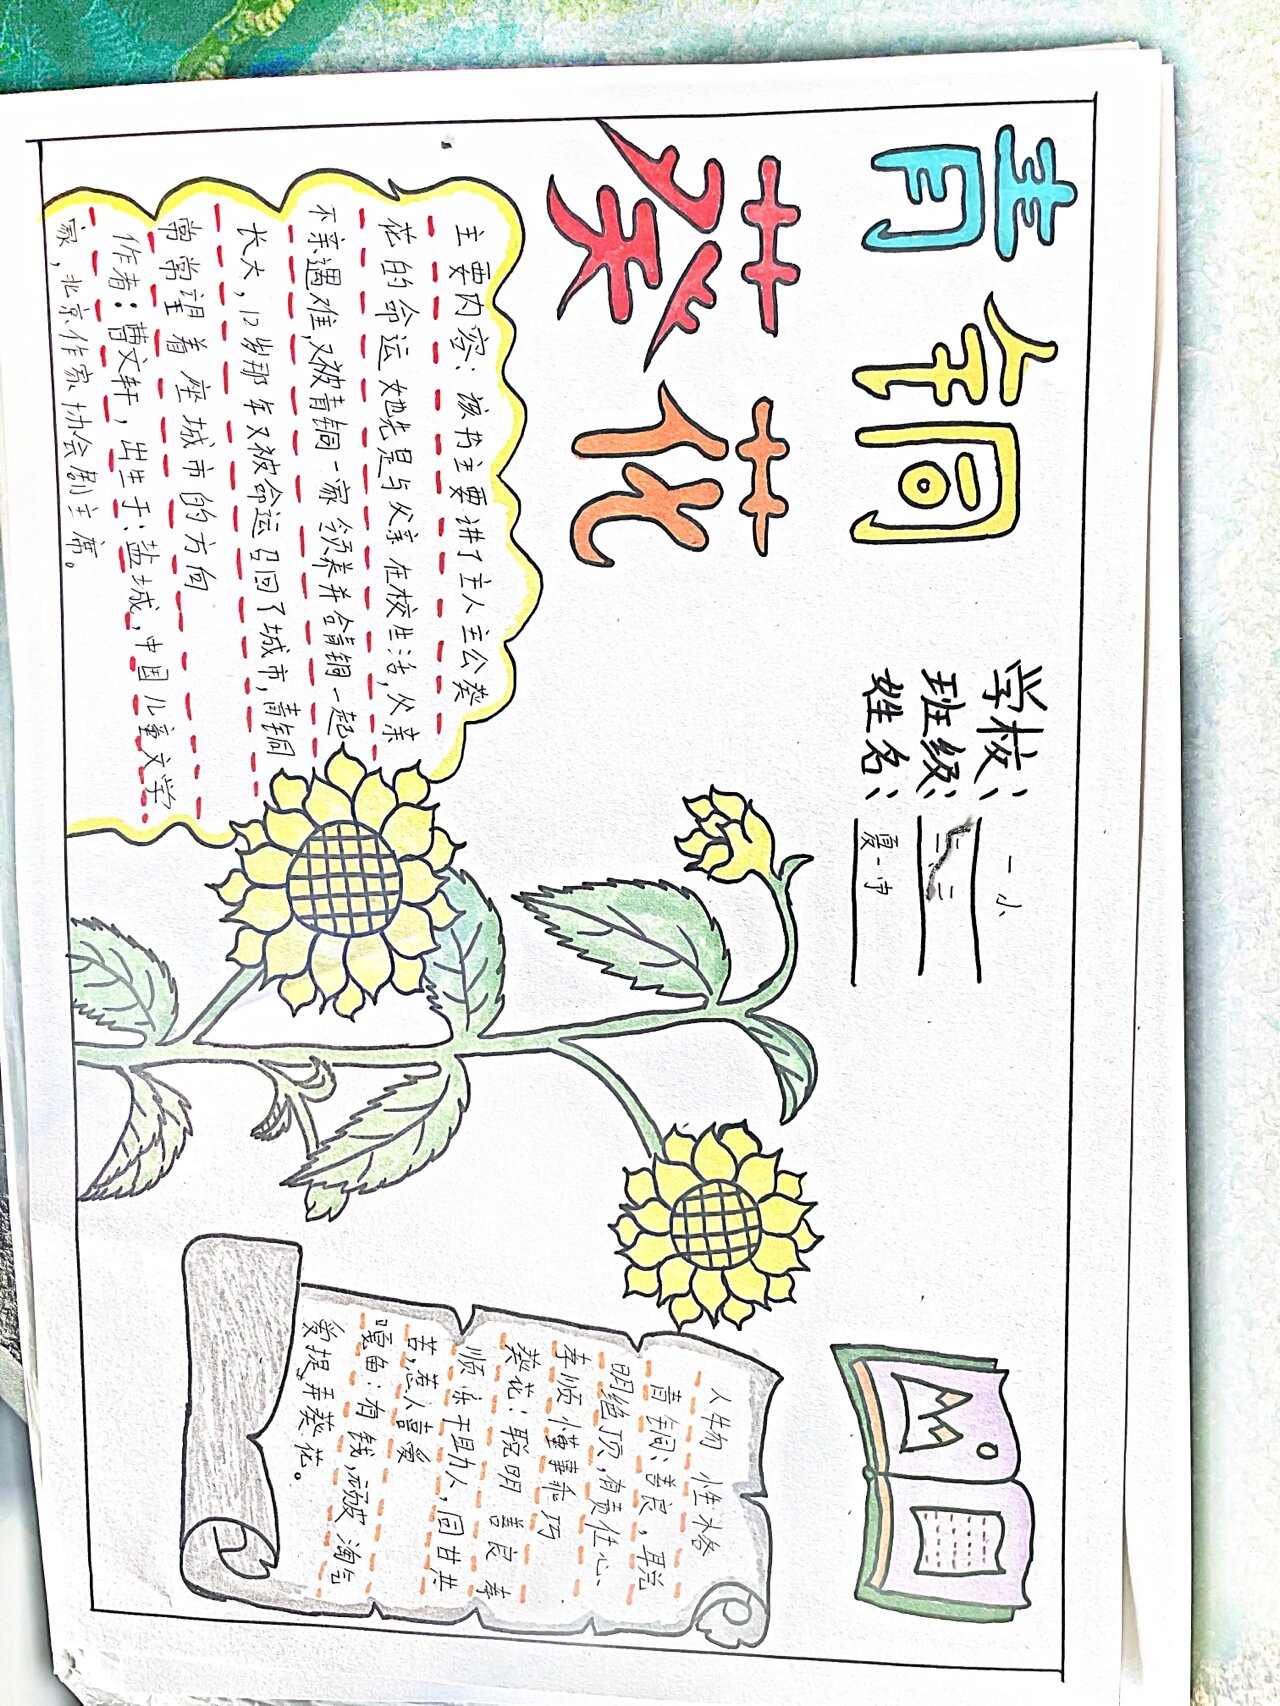 青铜
葵花
学校：一小
班级：三、三
姓名：夏一冉
主要内容：该书主要讲了主人主公葵
花的命运她先是与父亲在校生活，父亲
不亲遇难，又被青铜一家领养并合青铜一起
长大，12岁那年又被命运召回了城市，青铜
常常望着座城市的方向
作者：曹文轩，出生于：盐城，中国儿童文学
家，北京作家协会副主席。
人物性格
青铜：善良，聪
明绝顶，有责任心、
孝顺懂事乖巧
葵花：聪明 善良 孝
顺乐于助人，同甘共
苦，惹人喜爱
嘎鱼：有钱，顽皮淘气
爱捉弄葵花。